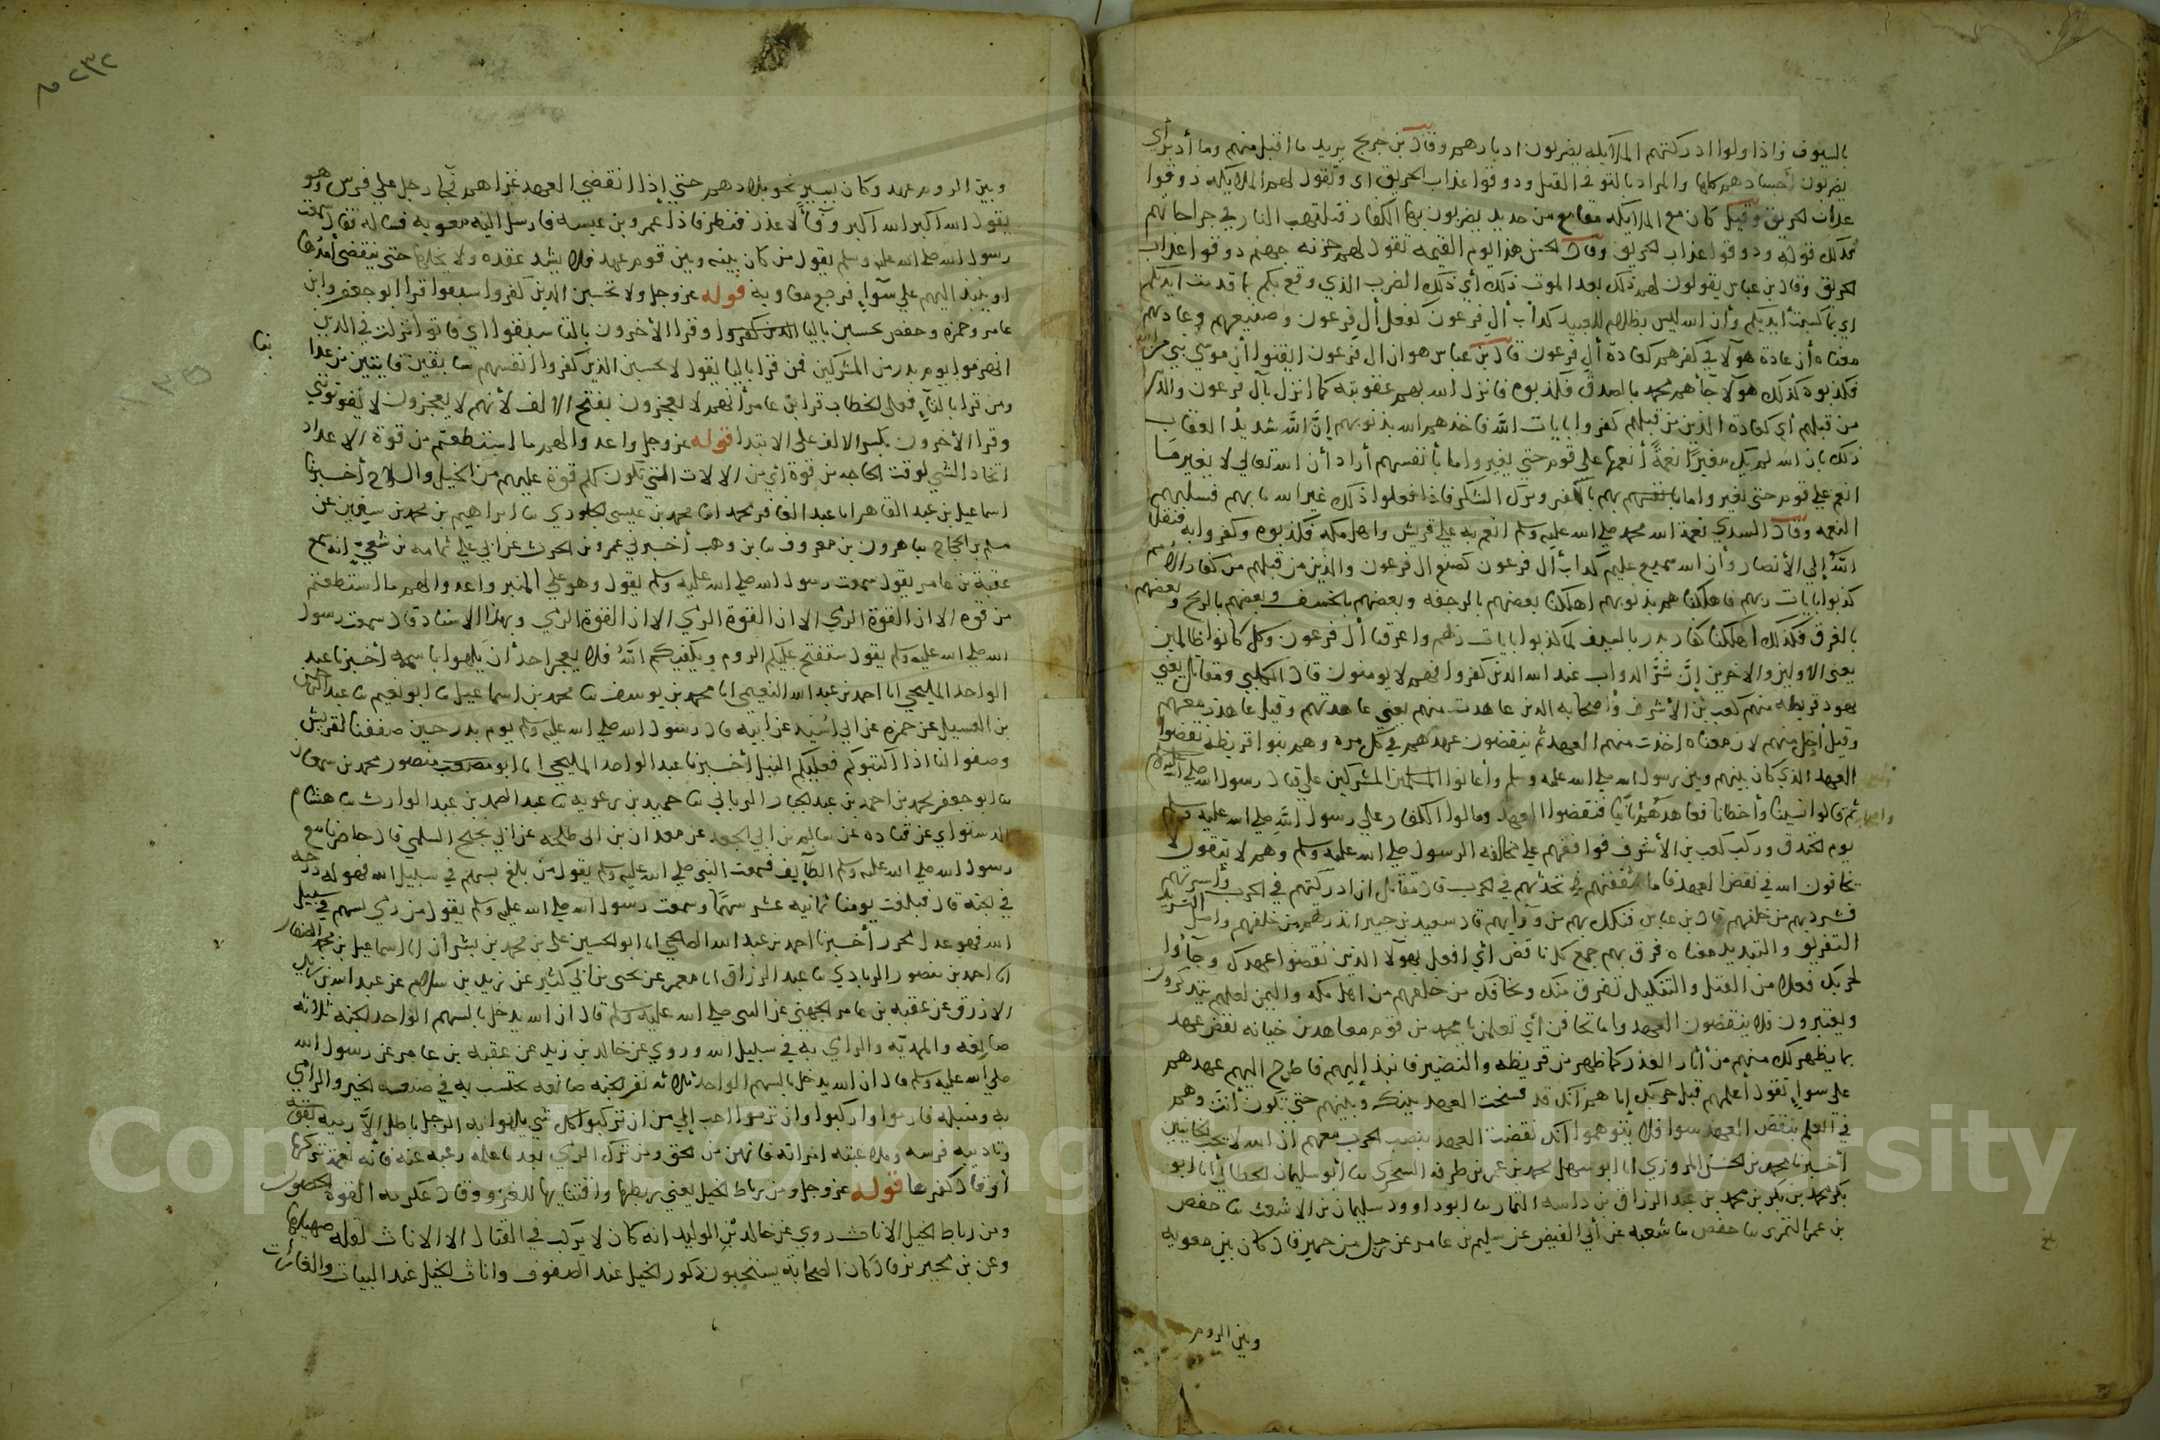 بالسيوف واذا ولوا ادركتهم الملايكه يضربون ادبارهم وقال بن جريج يريد ما اقبل منهم وما أدبر أي
يضربون أجسادهم كلها والمراد بالتوفى القتل وذوقوا عذاب الحريق اي وتقول لهم الملايكه ذوقوا
عذاب الحريق وقيل كان مع الملايكه مقامع من حديد يضربون بها الكفار فتلتهب النار في جراحاتهم
فذلك قوله وذوقوا عذاب الحريق وقال الحسن هذا يوم القيمه تقول لهم خزنه جهنم ذوقوا عذاب
الحريق وقال بن عباس يقولون لهم ذلك بعد الموت ذلك أي ذلك الضرب الذي وقع بكم بما قدمت ايديكم
اي بما كسبت أيديكم وأن الله ليس بظلام للعبيد كدأب أل فرعون كفعل أل فرعون وصنيعهم وعادتهم
معناه أن عادة هولآ في كفرهم كعادة أل فرعون قال بن عباس هو ان ال فرعون ايقنوا أن موسي نبي من الله
فكذبوه كذلك هولآ جآهم محمد بالصدق فكذبوه فانزل الله بهم عقوبته كما انزل بآل فرعون والذين
من قبلهم أي كعادة الذين من قبلهم كفروا بايات الله فاخذهم الله بذنوبهم إن الله شديد العقاب
ذلك بان الله لم يك مغيرا نعمة أنعمها علي قوم حتي يغيروا ما بأنفسهم أراد أن الله تعالي لا يغير ما
انعم علي قوم حتي يغيروا ما بانفسهم بهم بالكفر وترك الشكر فاذا فعلوا ذلك غير الله ما بهم فسلبهم
النعمه وقال السدي نعمة الله محمد صلي الله عليه وسلم انعم به علي قريش واهل مكه فكذبوه وكفروا به فنقله
الله إلي الأنصار وأن الله سميع عليم كدأب أل فرعون كصنع ال فرعون والذين من قبلهم من كفار الأمم
كذبوا بايات ربهم فاهلكناهم بذنوبهم اهلكنا بعضهم بالرجفه وبعضهم بالخسف وبعضهم بالريح وبعضهم
بالغرق فكذلك اهلكنا كفار بدر بالسيف لما كذبوا بايات ربهم واغرقنا أل فرعون وكل كانوا ظالمين
يعني الاولين والاخرين إن شر الدواب عند الله الذين كفروا فهم لا يومنون قال الكلبي ومقاتل يعني
يهود قريظه منهم كعب بن الأشرف وأصحابه الذين عاهدت منهم يعني عاهدتهم وقيل عاهدت معهم
وقيل أدخل منهم لان معناه اخذت منهم العهد ثم ينقضون عهدهم في كل مره وهم بنوا قريظه نقضوا
العهد الذي كان بينهم وبين رسول الله صلي الله عليه وسلم وأعانوا المشركين علي قتال رسول الله صلي الله عليه
ثم قالوا نسينا وأخطانا فعاهدهم ثانيا فنقضوا العهد ومالوا الكفار علي رسول الله صلي الله عليه وسلم
يوم الخندق وركب كعب بن الأشرف فوافقهم علي مخالفه الرسول صلي الله عليه وسلم وهم لا يتقون لا
يخافون الله في نقض العهد فاما تثقفنهم تجدنهم في الحرب قال مقاتل ان ادركتهم في الحرب وأسرتهم
فشرد بهم من خلفهم قال بن عباس فنكل بهم من ورآيهم قال سعيد بن جبير انذر بهم من خلفهم واصل التشريد
التفريق والتبديد معناه فرق بهم جمع كل ناقض أي افعل بهولآ الذين نقضوا عهدك وجآءوا
لحربك فعلا من القتل والتنكيل تفرق منك وتخافك من خلفهم من اهل مكه واليمن لعلهم يتذكرون
ويعتبرون فلا ينقضون العهد واما تخافن أي تعلمن يا محمد من قوم معاهدين خيانه نقض عهد
بما يظهر لك منهم من أثار الغدر كما ظهر من قريظه والنضير فانبذ إليهم فاطرح اليهم عهدهم
علي سوآء تقول أعلمهم قبل حربك إياهم أنك قد فسخت العهد بينك وبينهم حتي تكون أنت وهم
في العلم بنقض العهد سوا فلا يتوهموا انك نقضت العهد بنصب الحرب معهم ان الله لا يحب الخائنين
أخبرنا محمد بن الحسن المروزي انا ابو سهل محمد بن عمر بن طرفه السجزي نا أبو سليمان الخطابي أنا ابو
بكر محمد بن بكر بن محمد بن عبد الرزاق بن داسه التمار نا ابو داوود سليمان بن الاشعث نا حفص
بن عمر النمري نا حفص نا شعبه عن أبي الفيض عن سليم بن عامر عن رجل من حمير قال كان بين معويه
وبين الروم
وبين الروم عهد وكان يسير نحو بلادهم حتي إذا انقضي العهد غزاهم فجا رجل علي فرس وهو
يقول الله اكبر الله اكبر وفآء لا غدر فنظر فاذا عمرو بن عبسه فارسل اليه معويه فساله فقال سمعت
رسول الله صلي الله عليه وسلم يقول من كان بينه وبين قوم عهد فلا يشد عقده ولا يحلها حتي ينقضي أمدها
او ينبذ اليهم علي سوآء فرجع معاويه قوله عز وجل ولا تحسبن الذين كفروا سبقوا قرا ابو جعفر وابن
عامر وحمزه وحفص يحسبن باليا الذين كفروا وقرا الأخرون بالتا سبقوا اي فاتوا نزلت في الذين
انهزموا يوم بدر من المشركين فمن قرا باليا يقول لا يحسبن الذين كفروا انفسهم سابقين فايتين من عذابنا
ومن قرا بالتآء فعلي الخطاب قرا ابن عامر أنهم لا يعجزون بفتح الالف لأنهم لا يعجزون لا يفوتوني
وقرا الأخرون بكسر الالف علي الابتدا قوله عز وجل واعدوا لهم ما استطعتم من قوة الاعداد
اتخاذ الشي لوقت الحاجه من قوة أي من الالات التي تكون لكم قوة عليهم من الخيل والسلاح أخبرنا
اسماعيل بن عبد القاهر انا عبد الغافر بن محمد انا محمد بن عيسي الجلودي نا ابراهيم بن محمد بن سفين عن
مسلم بن الحجاج نا هرون بن معروف نا بن وهب أخبرني عمرو بن الحرث عن ابي علي ثمامه بن شفي انه سمع
عقبة بن عامر يقول سمعت رسول الله صلي الله عليه وسلم يقول وهو علي المنبر واعدوا لهم ما استطعتم
من قوه الا ان القوة الرمي الا ان القوة الرمي الا ان القوة الرمي وبهذا الاسناد قال سمعت رسول
الله صلي الله عليه وسلم يقول ستفتح عليكم الروم ويكفيكم الله فلا يعجز احدكم أن يلهوا باسهمه أخبرنا عبد
الواحد المليحي انا احمد بن عبد الله النعيمي انا محمد بن يوسف نا محمد بن اسماعيل نا ابو نعيم نا عبد الرحمن
بن الغسيل عن حمزه عن ابي اسيد عن ابيه قال رسول الله صلي الله عليه وسلم يوم بدر حين صففنا لقريش
وصفوا لنا اذا اكثبوكم فعليكم النبل أخبرنا عبد الواحد المليحي انا ابو منصور محمد بن سمعان
نا ابو جعفر محمد بن احمد بن عبد الجبار الرياني نا حميد بن زنجويه نا عبد الصمد بن عبد الوارث نا هشام
الدستواي عن قتاده عن سالم بن ابي الجعد عن معدان بن ابي طلحه عن ابي نجيح السلمي قال حاصرنا مع
رسول الله صلي الله عليه وسلم الطآيف فسمعت النبي صلي الله عليه وسلم يقول من بلغ بسهم في سبيل الله فهو له درجه
في الجنه قال فبلغت يومئذ ثمانيه عشر سهما وسمعت رسول الله صلي الله عليه وسلم يقول من رمي بسهم في سبيل
الله فهو عدل محرر أخبرنا احمد بن عبد الله الصالحي انا ابو الحسين علي بن محمد بن بشران انا اسماعيل بن محمد الصفار
نا احمد بن منصور الرمادي نا عبد الرزاق انا معمر عن يحيى بن ابي كثير عن زيد بن سلام عن عبد الله بن زيد
الازرق عن عقبه بن عامر الجهني عن النبي صلي الله عليه وسلم قال ان الله يدخل بالسهم الواحد الجنه ثلاثه
صانعه والممد به والرامي به في سبيل الله وروي عن خالد بن زيد عن عقبه بن عامر عن رسول الله
صلي الله عليه وسلم قال ان الله يدخل بالسهم الواحد ثلاثه نفر الجنه صانعه يحتسب به في صنعته الخير والرامي
به ومنبله فارموا واركبوا وان ترموا احب إلي من ان تركبوا كل شي يلهوا به الرجل باطل الا رميه بقوسه
وتاديبه فرسه وملاعبته امراته فانهن من الحق ومن ترك الرمي بعد ما علمه رغبه عنه فانه نعمة تركها
أو قال كفرها قوله عز وجل ومن رباط الخيل يعني ربطها واقتنايها للغزو وقال عكرمه القوة الحصون
ومن رباط الخيل الاناث روي عن خالد بن الوليد انه كان لا يركب في القتال الا الاناث لقله صهيلها
وعن بن محيريز قال كان الصحابة يستحبون ذكور الخيل عند الصفوف واناث الخيل عند البيات والغارات